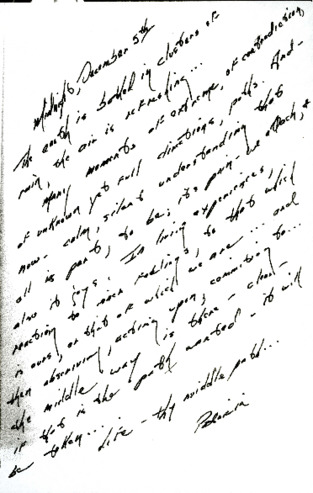 Midnight, December 5th
The earth is bathed in clusters of
rain, the air is refreshing...
Many moments of extreme, of contradiction,
of unknown yet full directions, pulls. And -
now - calm, silent understanding that
all is part, to be, its pain - we attach, &
also its joys. In living experiences,
reaction to inner feelings, to that which
is ours, or that of which we are... and
then observing, acting upon, committing to...
the middle way is there - clear -
if that is the path wanted - it will
be taken... Life - thy middle path...
Patricia